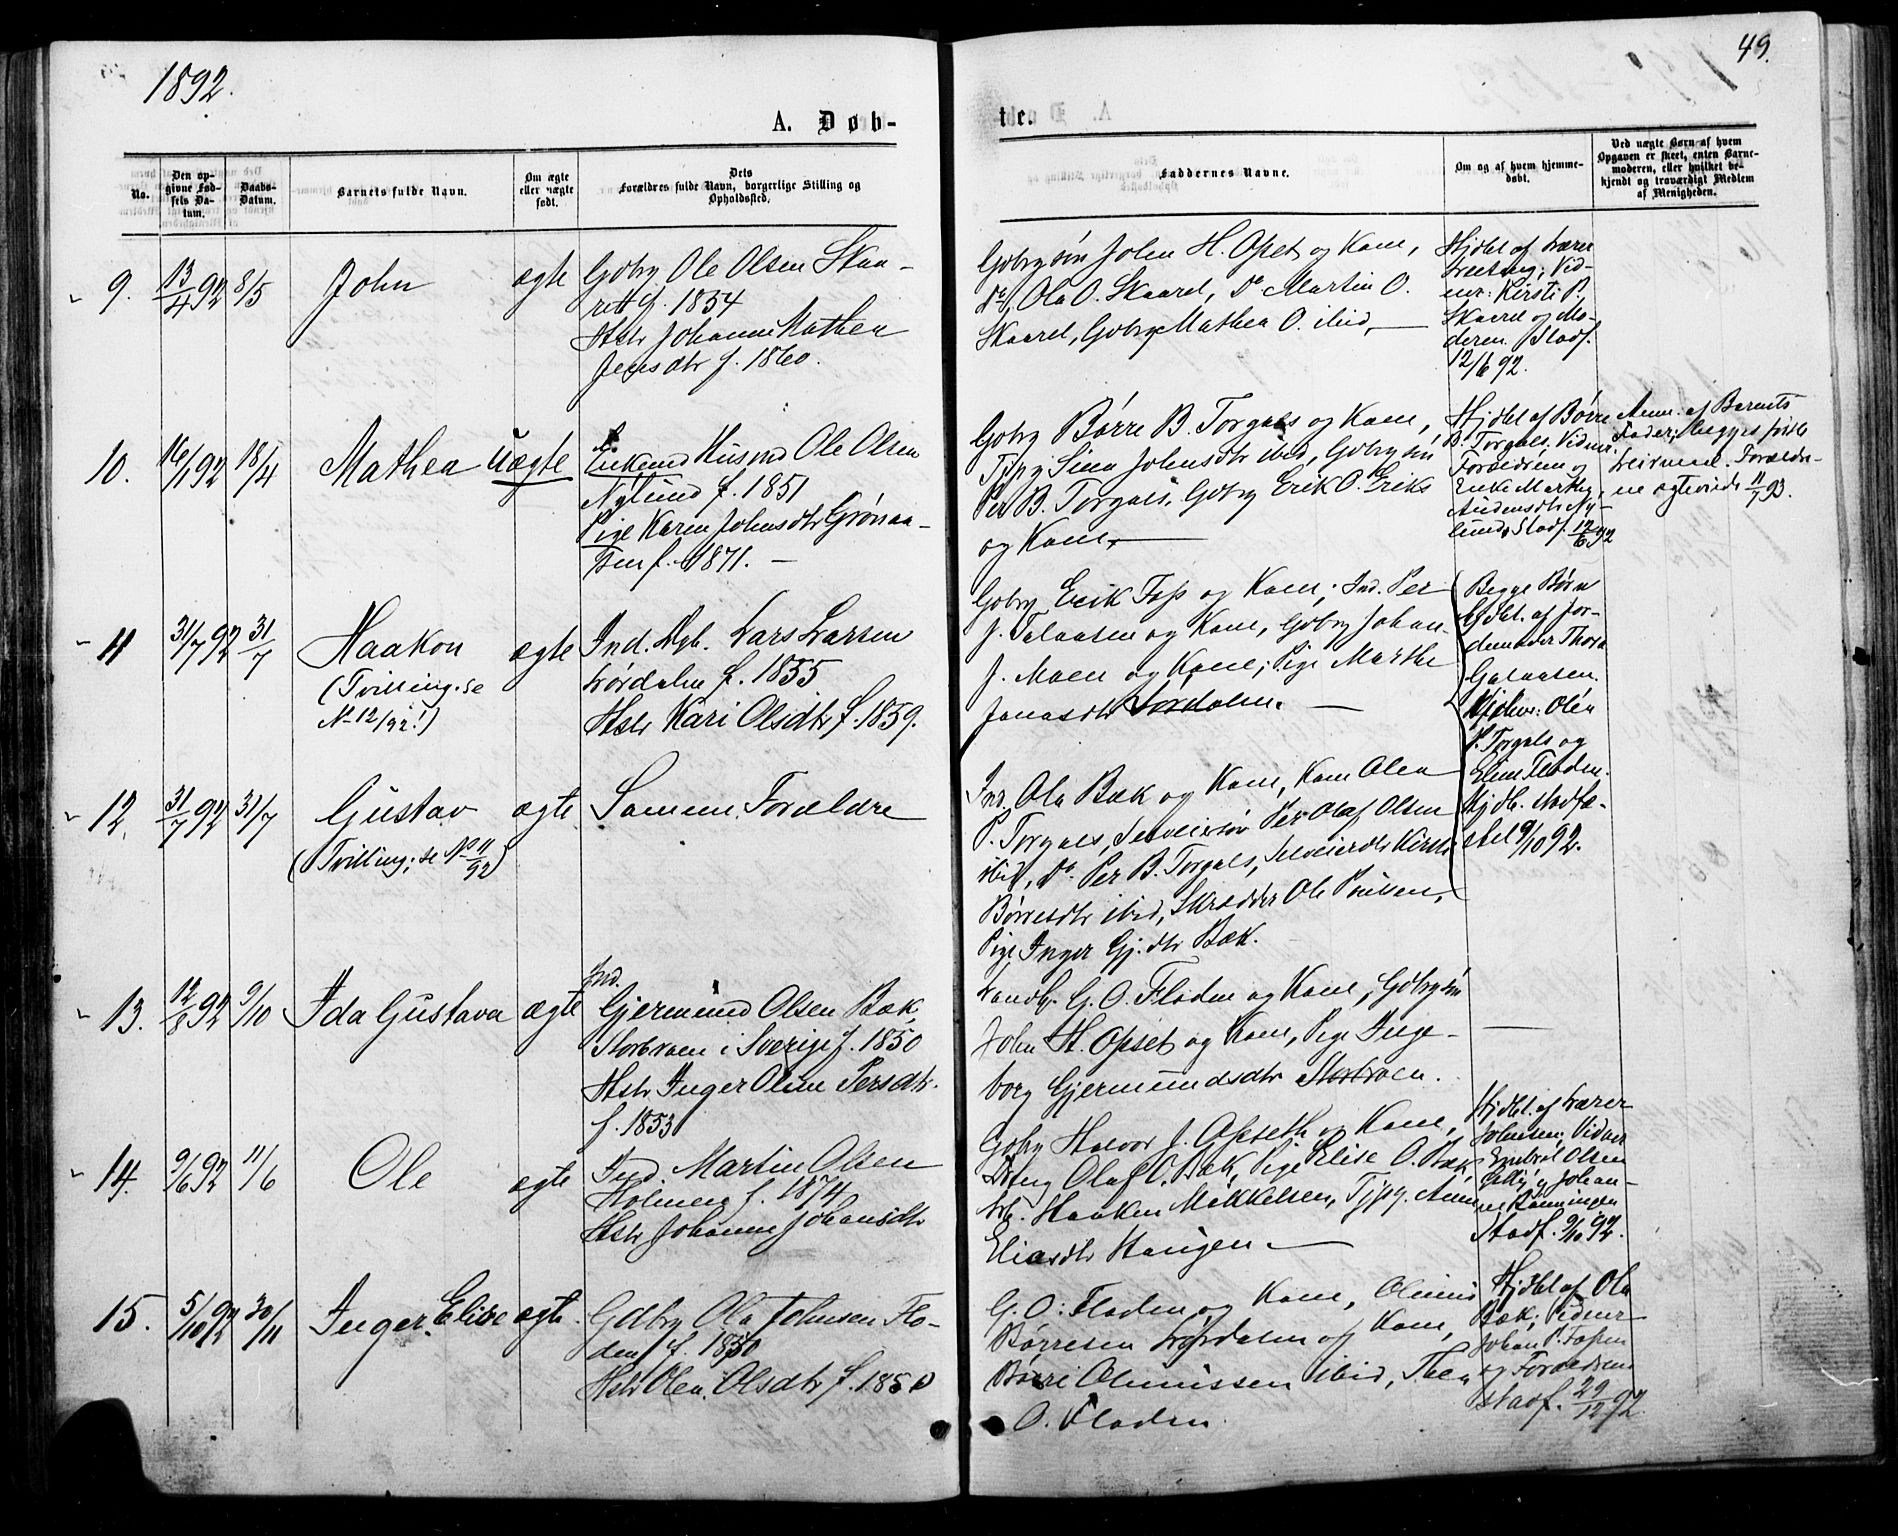 1892.
49.
A. Døb-
te.
No.
Den op-
givne Fød-
sels Da-
tum.
Daabs-
Datum.
Barnets fulde Navn.
Om ægte
eller uægte
født.
Dets
Forældres fulde Navn, borgerlige Stilling og
Opholdssted.
Faddernes Navne.
Om og af hvem hjemme-
døbt.
Ved uægte Børn af hvem
Opgaven er skeet, enten Barne-
moderen, eller hvilket be-
kjendt og troværdigt Medlem
af Menigheden.
9. 13/4 92 8/5 John ægte
Gdbrg Ole Olsen Skaa-
ret f. 1854
Hstr Johanne Mathea
Jensdtr f. 1860.
Gdbrgsøn John H. Opset og Kone,
Do, Ola O. Skaaret, Do Martin O.
Skaaret, Gdbrg Mathea O. ibid,
Hjdbt af Lærer
Vid-
ner: Kirsti P.
Skaaret og Mo-
deren. Stadf.
12/6 92.
10. 16/1 92 18/4 Mathea uægte
Enkemd Husmd Ole Olsen
Nylund f. 1851
Pige Karen Johnsdtr Grønaa-
sen f. 1871.
Gdbrg Børre B. Torgals og Kone,
Tjpg Sina Johnsdtr ibid, Gdbrgsøn
Per B. Torgals, Gdbrg Erik O. Eriks
og Kone,
Hjdbt af Børre
B. Torgals. Vidner
Forældrene og
Enke Marthe
Audensdtr Ny-
lund, Stadf. 12/6 92
Anm. af Barnets
Fader; begges første
Leiermaal. Forældre-
ne ægteviede 11/7 93.
11 31/7 92 31/7 Haakon
(Tvilling; se
No 12/92!)
ægte
Ind. Dgb. Lars Larsen
Lørdalen f. 1855
Hstr Kari Olsdtr f. 1859.
Gdbrg Erik Foss og Kone; Ind. Per
J. Galaasen og Kone, Gdbrg Johan
J. Moen og Kone; Pige Marthe
Jonasdtr Lørdalen.
Begge Børn
hjdbt. af Jor-
demoder Thora
Galaasen.
Vidner: Oléa
P. Torgals og
Eline Floden.
Hjdb. stadfæ-
stet 9/10 92.
12. 31/7 92 31/7 Gustav
(Tvilling; se No 11/92)
ægte
Samme Forældre
Ind. Ola Bæk og Kone, Kone Olea
P. Torgals, Selveiersøn Per Olaf Olsen
ibid, Do Per B. Torgals, Selveierdtr Kirsti
Børresdtr ibid, Skrædder Ole Poulsen,
Pige Inger Gj.dtr Bæk.
13. 12/8 92 9/10 Ida Gustava ægte
Ind.
Gjermund Olsen Bæk,
Storbroen i Sverige f. 1850
Hstr Inger Oline Persdtr.
f. 1853
Landh. G. O. Floden og Kone, Gdbrgsøn
John H. Opset og Kone, Pige Inge-
borg Gjermundsdtr Storbroen.
14. 9/6 92 11/6 Ole ægte
Ind Martin Olsen
Holmen f. 1874
Hstr Johanne Johansdtr
Gdbrg Halvor J. Opseth og Kone,
Dreng Olaf O. Bæk, Pige Elise O. Bæk,
Haaken Mikkelsen, Tjpg. Anne
Eliasdtr Haugen.
Hjdbt. af Lærer
Johnsen. Vidner
Embret Olsen
og Johan-
ne Rønningen
Stadf. 9/10 92.
15. 5/10 92 30/11 Inger Elise ægte.
Gdbrg Ola Johnsen Flo-
den f. 1850
Hstr Olea Olsdtr f. 1850
G. O. Floden og Kone, Olinus
Børresen Lørdalen og Kone,
Børre Olinussen ibid, Thea
O. Floden.
Hjdbt af Ola
Bæk; Vidner
Johan P. Fossen
og Forældrene
stadf. 29/12 92